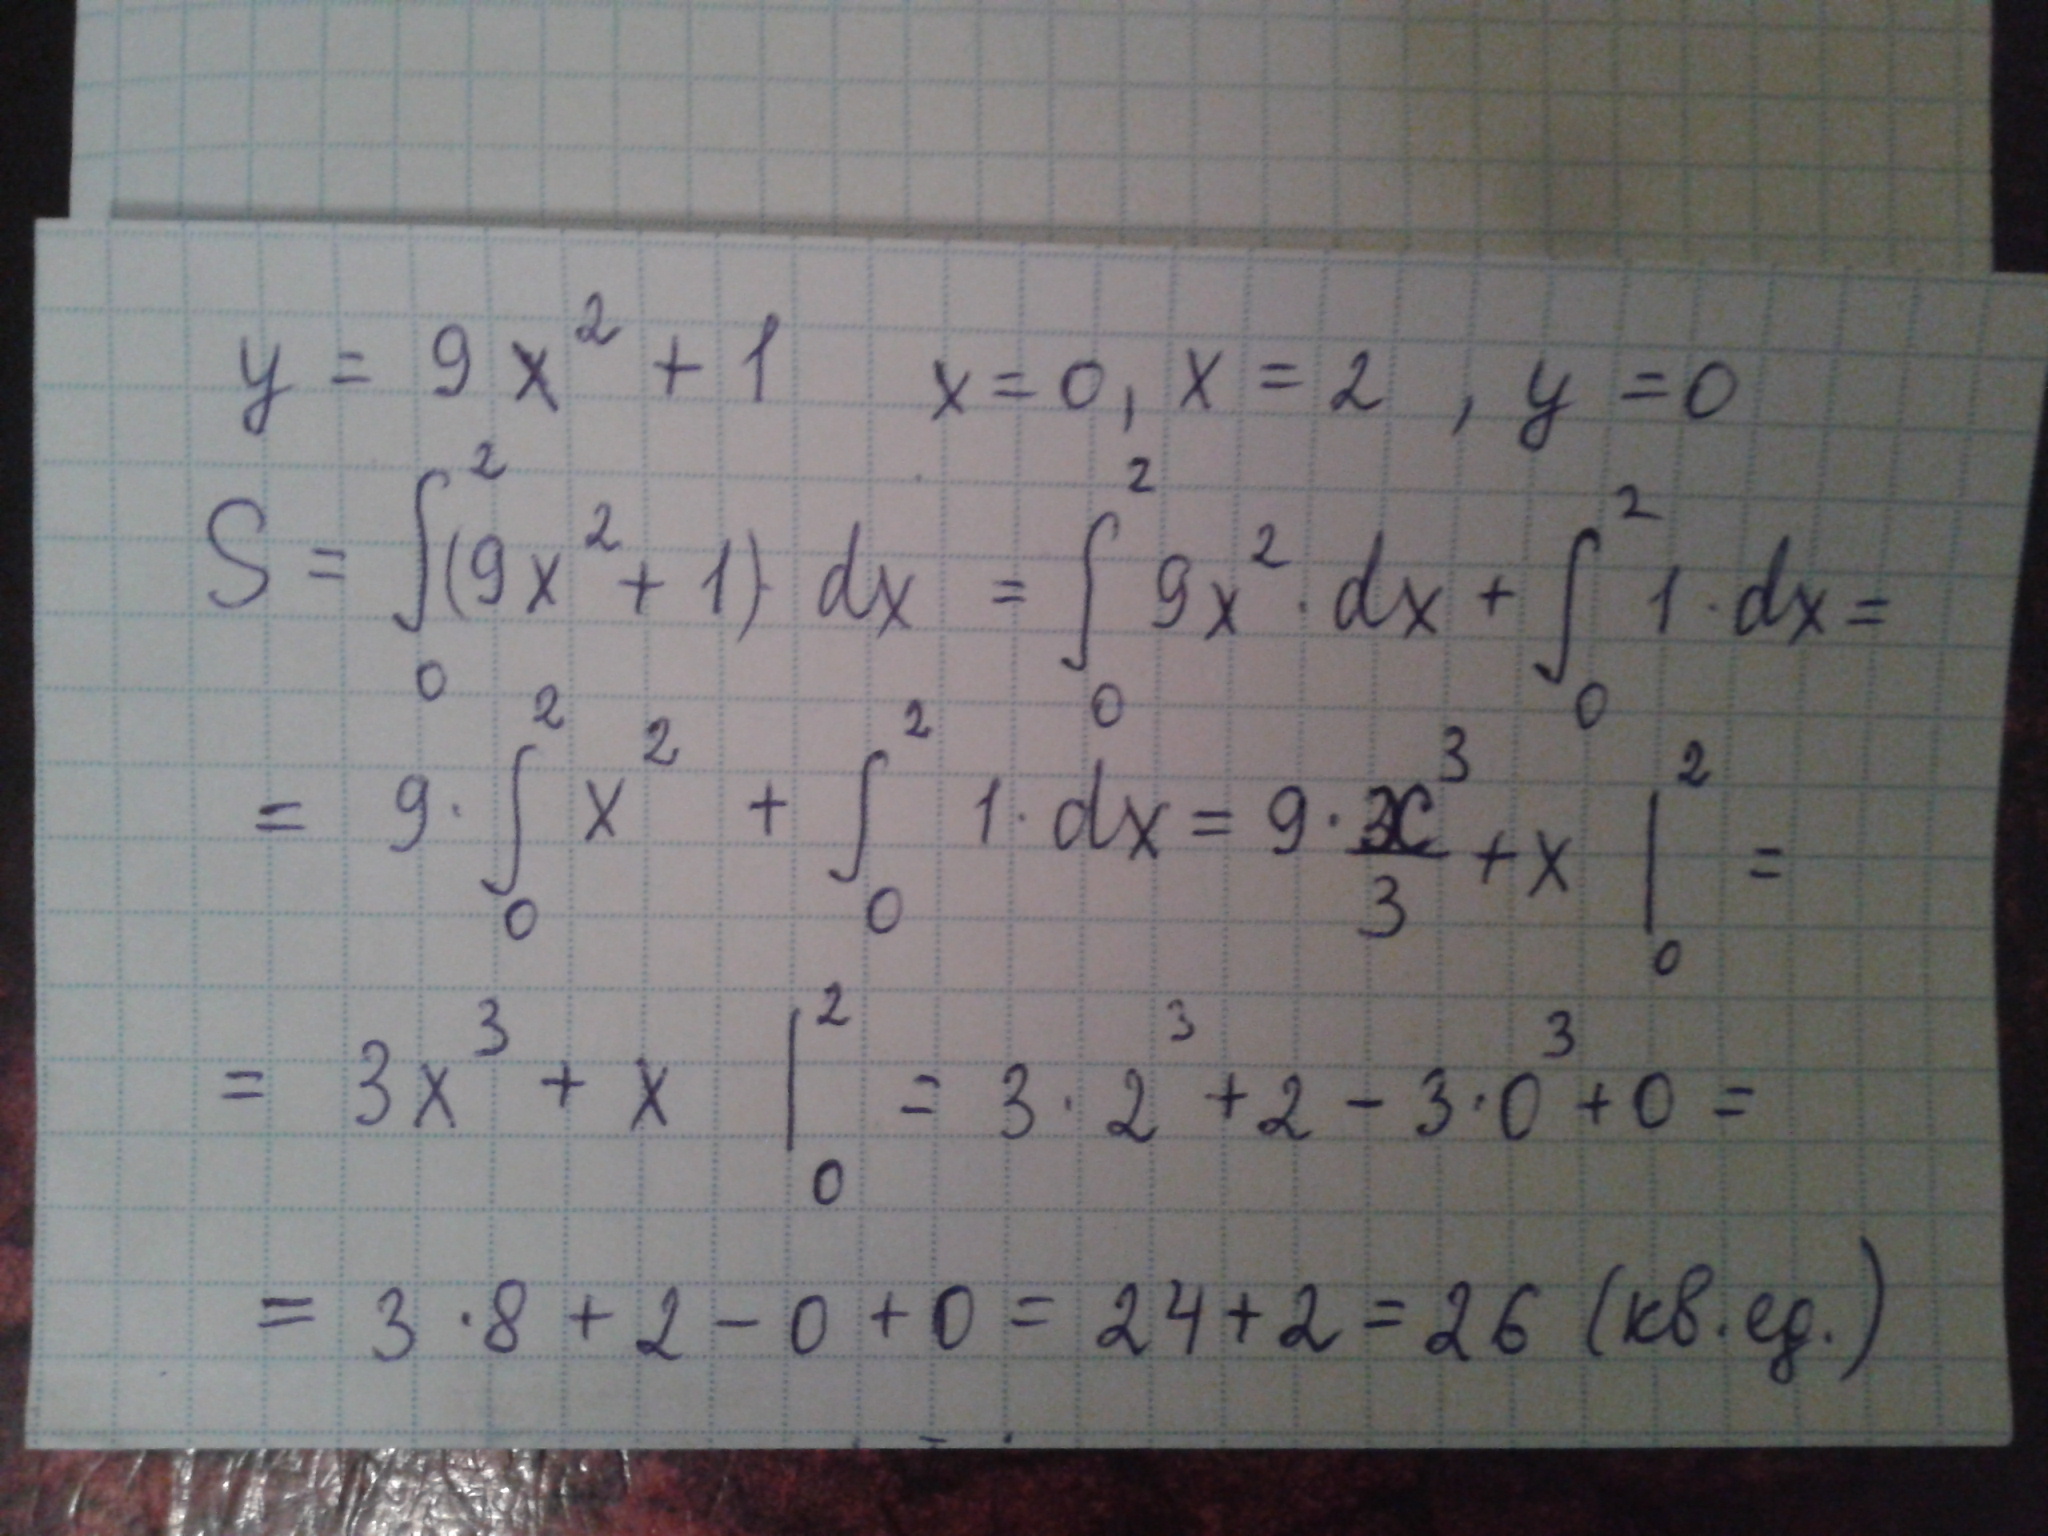 y = 9x² + 1   x = 0, x = 2, y = 0
S = ∫₀² (9x² + 1) dx = ∫₀² 9x² · dx + ∫₀² 1 · dx =
= 9 · ∫₀² x² + ∫₀² 1 · dx = 9 · x³/3 + x |₀² =
= 3x³ + x |₀² = 3 · 2³ + 2 − 3 · 0³ + 0 =
= 3 · 8 + 2 − 0 + 0 = 24 + 2 = 26 (кв. ед.)